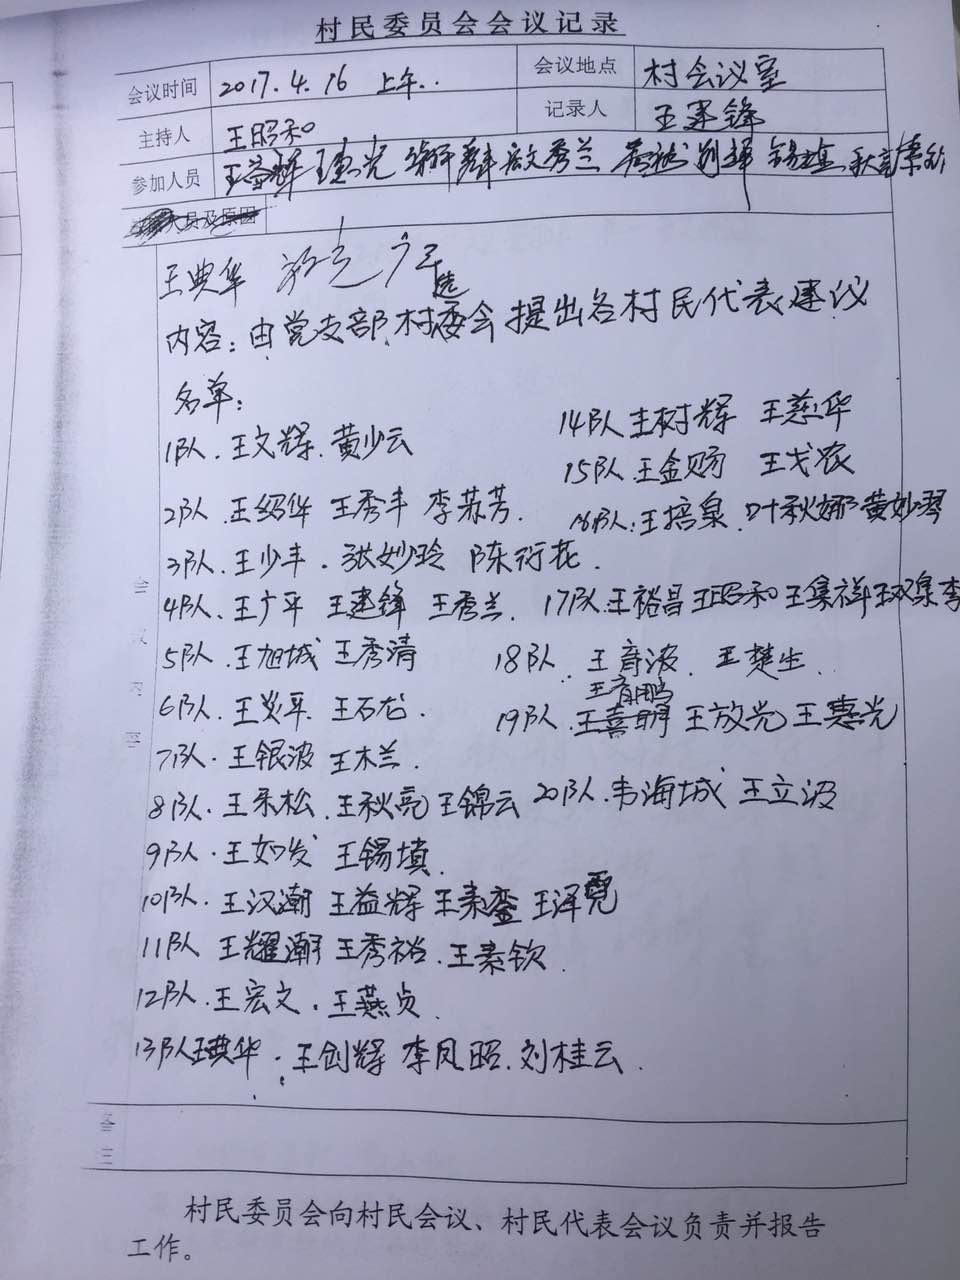 村民委员会会议记录
会议时间 2017.4.16 上午.. 会议地点 村会议室
主持人 王昭和 记录人 王建锋
参加人员 王 辉 王惠光 文秀兰
人员及原因
王典华
选
内容：由党支部、村委会提出各村民代表建议
名单：
1队.王文辉.黄少云
2队.王绍华 王秀丰 李荪芳.
3队.王少丰.张妙玲 陈衍花.
4队.王广平 王建锋 王秀兰.
5队.王旭城 王秀清
6队.王炎平 王石龙.
7队.王银波 王木兰.
8队.王来松.王秋亮 王锦云
9队.王如发 王锡填.
10队.王汉潮 王益辉 王素銮 王泽霓
11队 王耀潮 王秀裕.王素钦.
12队.王宏文.王燕贞.
13队王典华.王创辉 李凤昭.刘桂云.
14队 王树辉 王慈华
15队.王金赐 王戈农
16队:王培泉.叶秋娜 黄妙琴
17队.王裕昌 王昭和 王集祥 王双集 李
18队.王育波.王楚生.
王育鹏
19队.王喜明 王放光 王惠光
20队.韦海城 王立波
会议内容
备注
村民委员会向村民会议、村民代表会议负责并报告
工作。